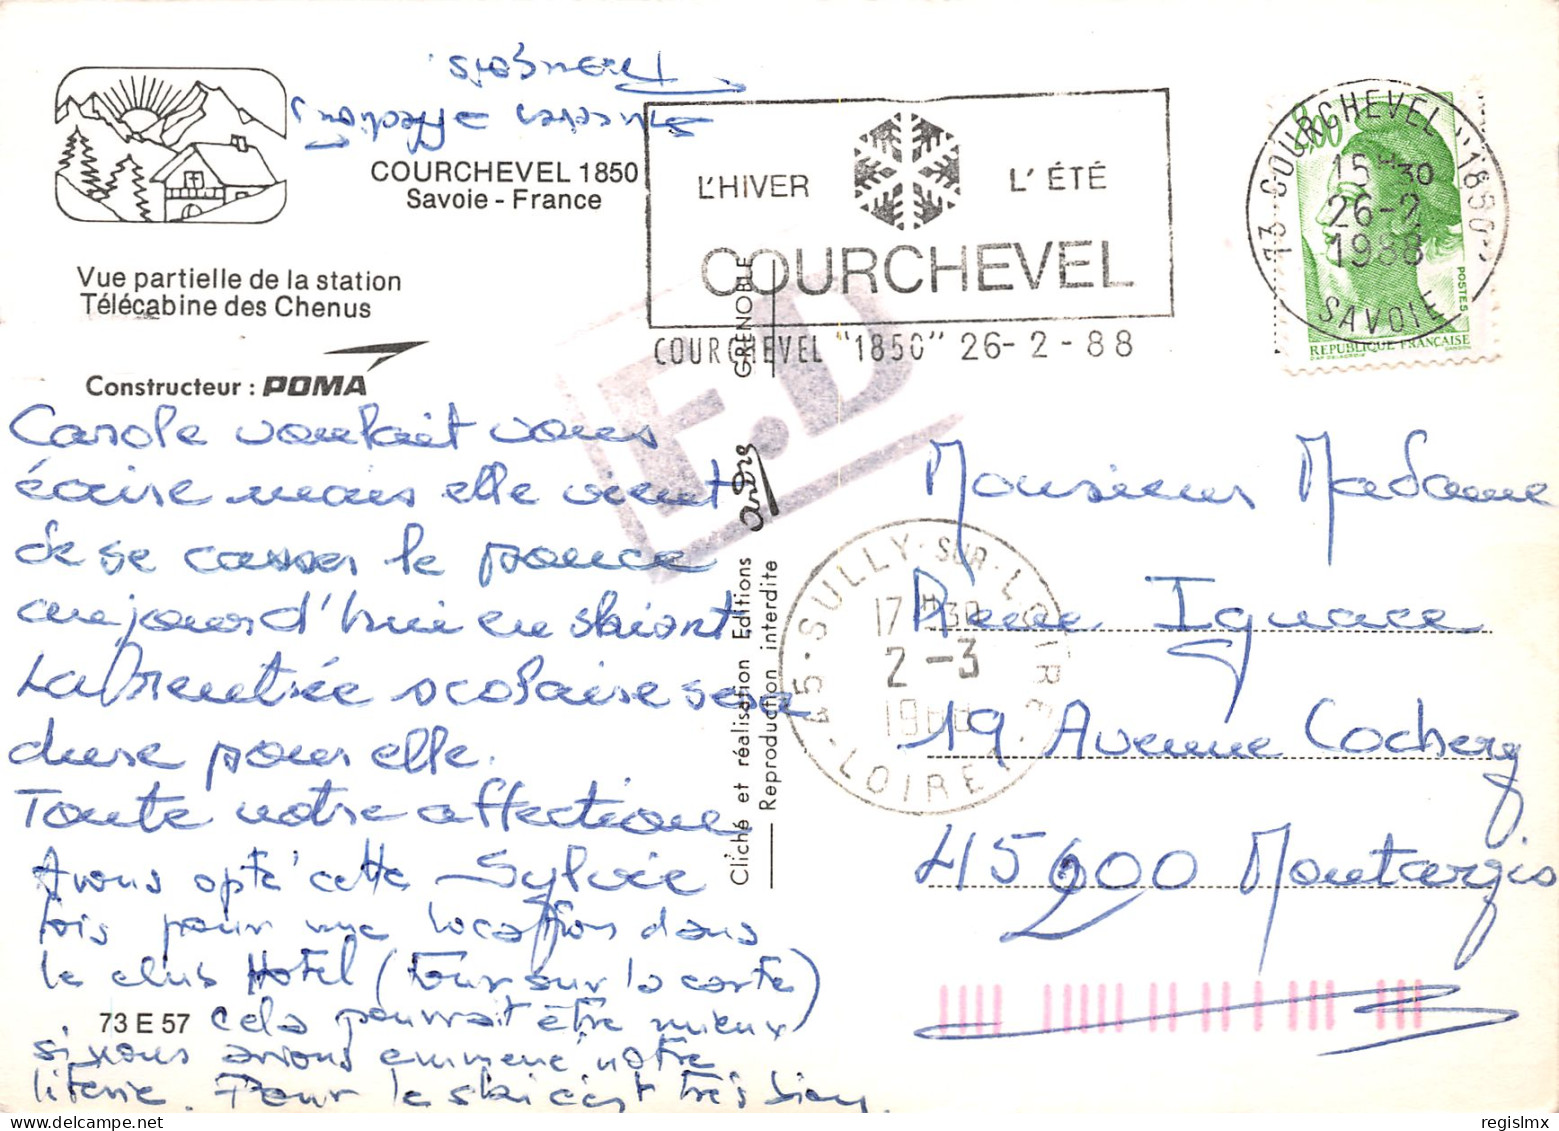 COURCHEVEL 1850
Savoie - France
Vue partielle de la station
Télécabine des Chenus
Constructeur : POMA
Carole voulait vous
écrire mais elle vient
de se casser le pouce
aujourd'hui en skiant
La rentrée scolaire sera
dure pour elle.
Toute notre affection
Sylvie
Avons opté cette
fois pour une location dans
le club Hotel (tour sur la carte)
cela pourrait être mieux
si nous avions emmené notre
literie. Pour le ski c'est très bien
Sincères affections
François
73 E 57
L'HIVER L'ÉTÉ
COURCHEVEL
COURCHEVEL "1850" 26-2-88
73 COURCHEVEL "1850"
15H30
26-2
1988
SAVOIE
2,00
POSTES
REPUBLIQUE FRANÇAISE
F.D
GRENOBLE
ANDRE
Cliché et réalisation Editions
Reproduction interdite
45 - SULLY-SUR-LOIRE
17H30
2-3
1988
LOIRET
Monsieur Madame
Pierre Ignace
19 Avenue Cochery
45200 Montargis
regislmx
delcampe.net